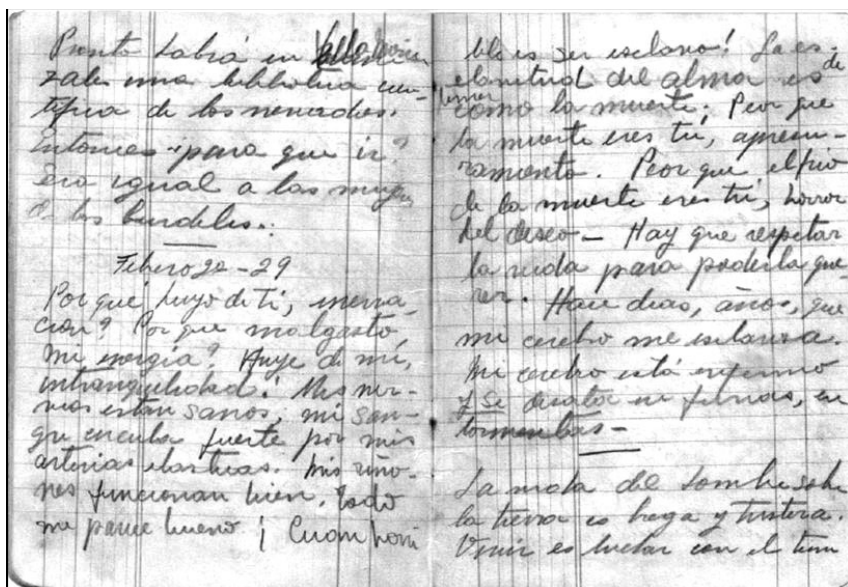 Pronto habrá en
zales una biblioteca cien-
tífica de los
Entonces ¿para que ir?
Era igual a las mugres
de los burdeles..
Febrero 20-29
Por qué huyo de ti,
cion? Por que malgasto
mi energia? Huye de mí,
intranquilidad! Mis ner-
vios están sanos, mi san-
gre circula fuerte por mis
arterias elasticas. Mis riño-
nes funcionan bien. Todo
me parece bueno ¡ Cuan horri
ble es ser esclavo! La es-
clavitud del alma es de
como la muerte. Peor que
la muerte eres tú, apresu-
ramiento. Peor que el frio
de la muerte eres tú, horror
del deseo — Hay que respetar
la vida para poderla que-
rer. Hace dias, años, que
mi cerebro me esclaviza.
Mi cerebro está enfermo
y se desata en furias, en
tormentas —
La del hombre sobre
la tierra es brega y tristeza.
Vivir es luchar con el tem